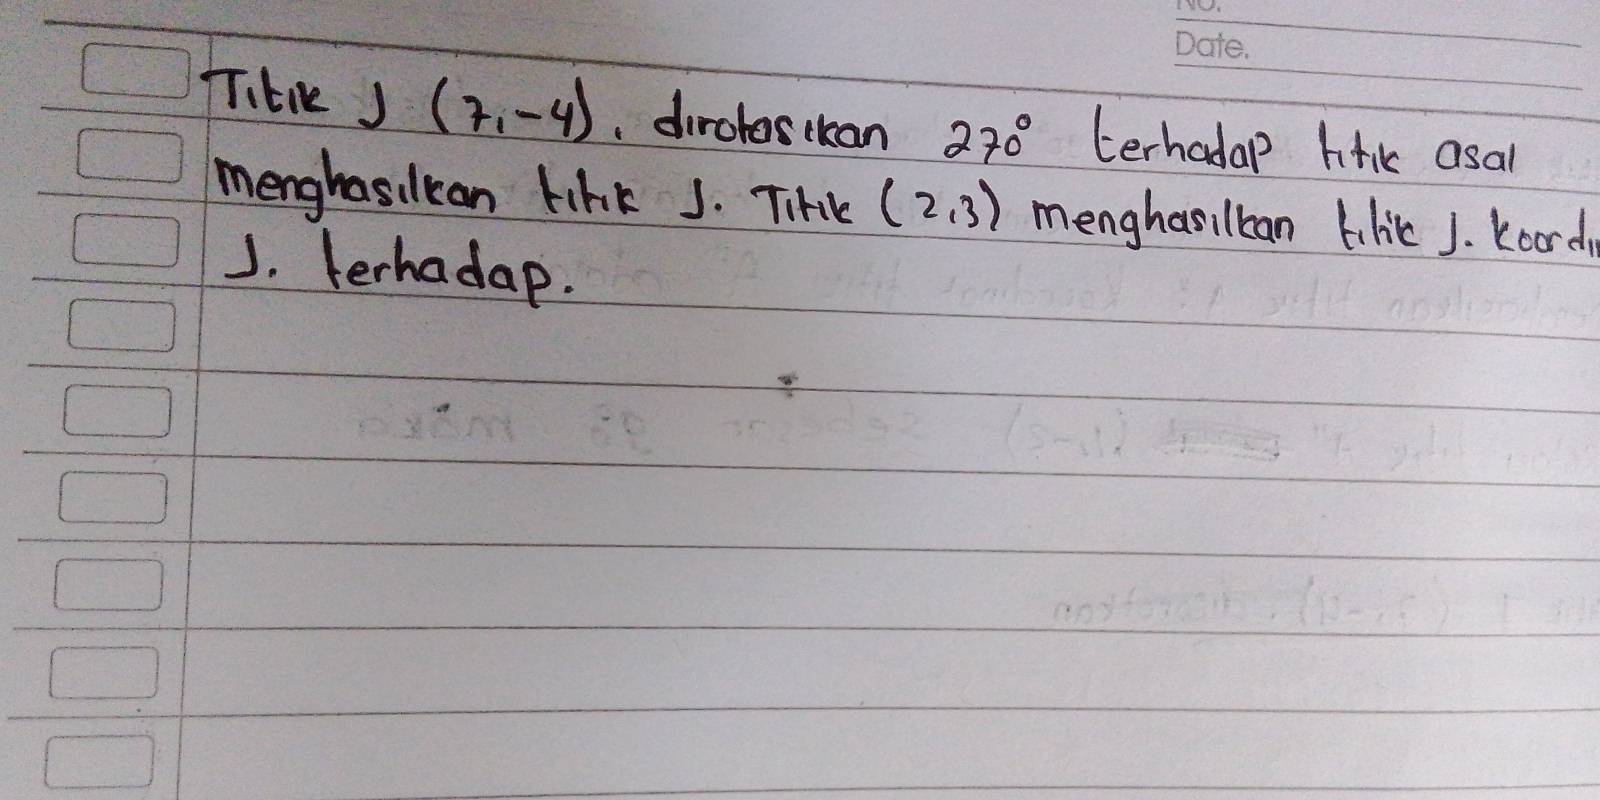 No.
Date.
Titik J (7,-4), dirotasikan 270° terhadap titik asal
menghasilkan titik J. Titik (2,3) menghasilkan titik J. koordi
J. terhadap.